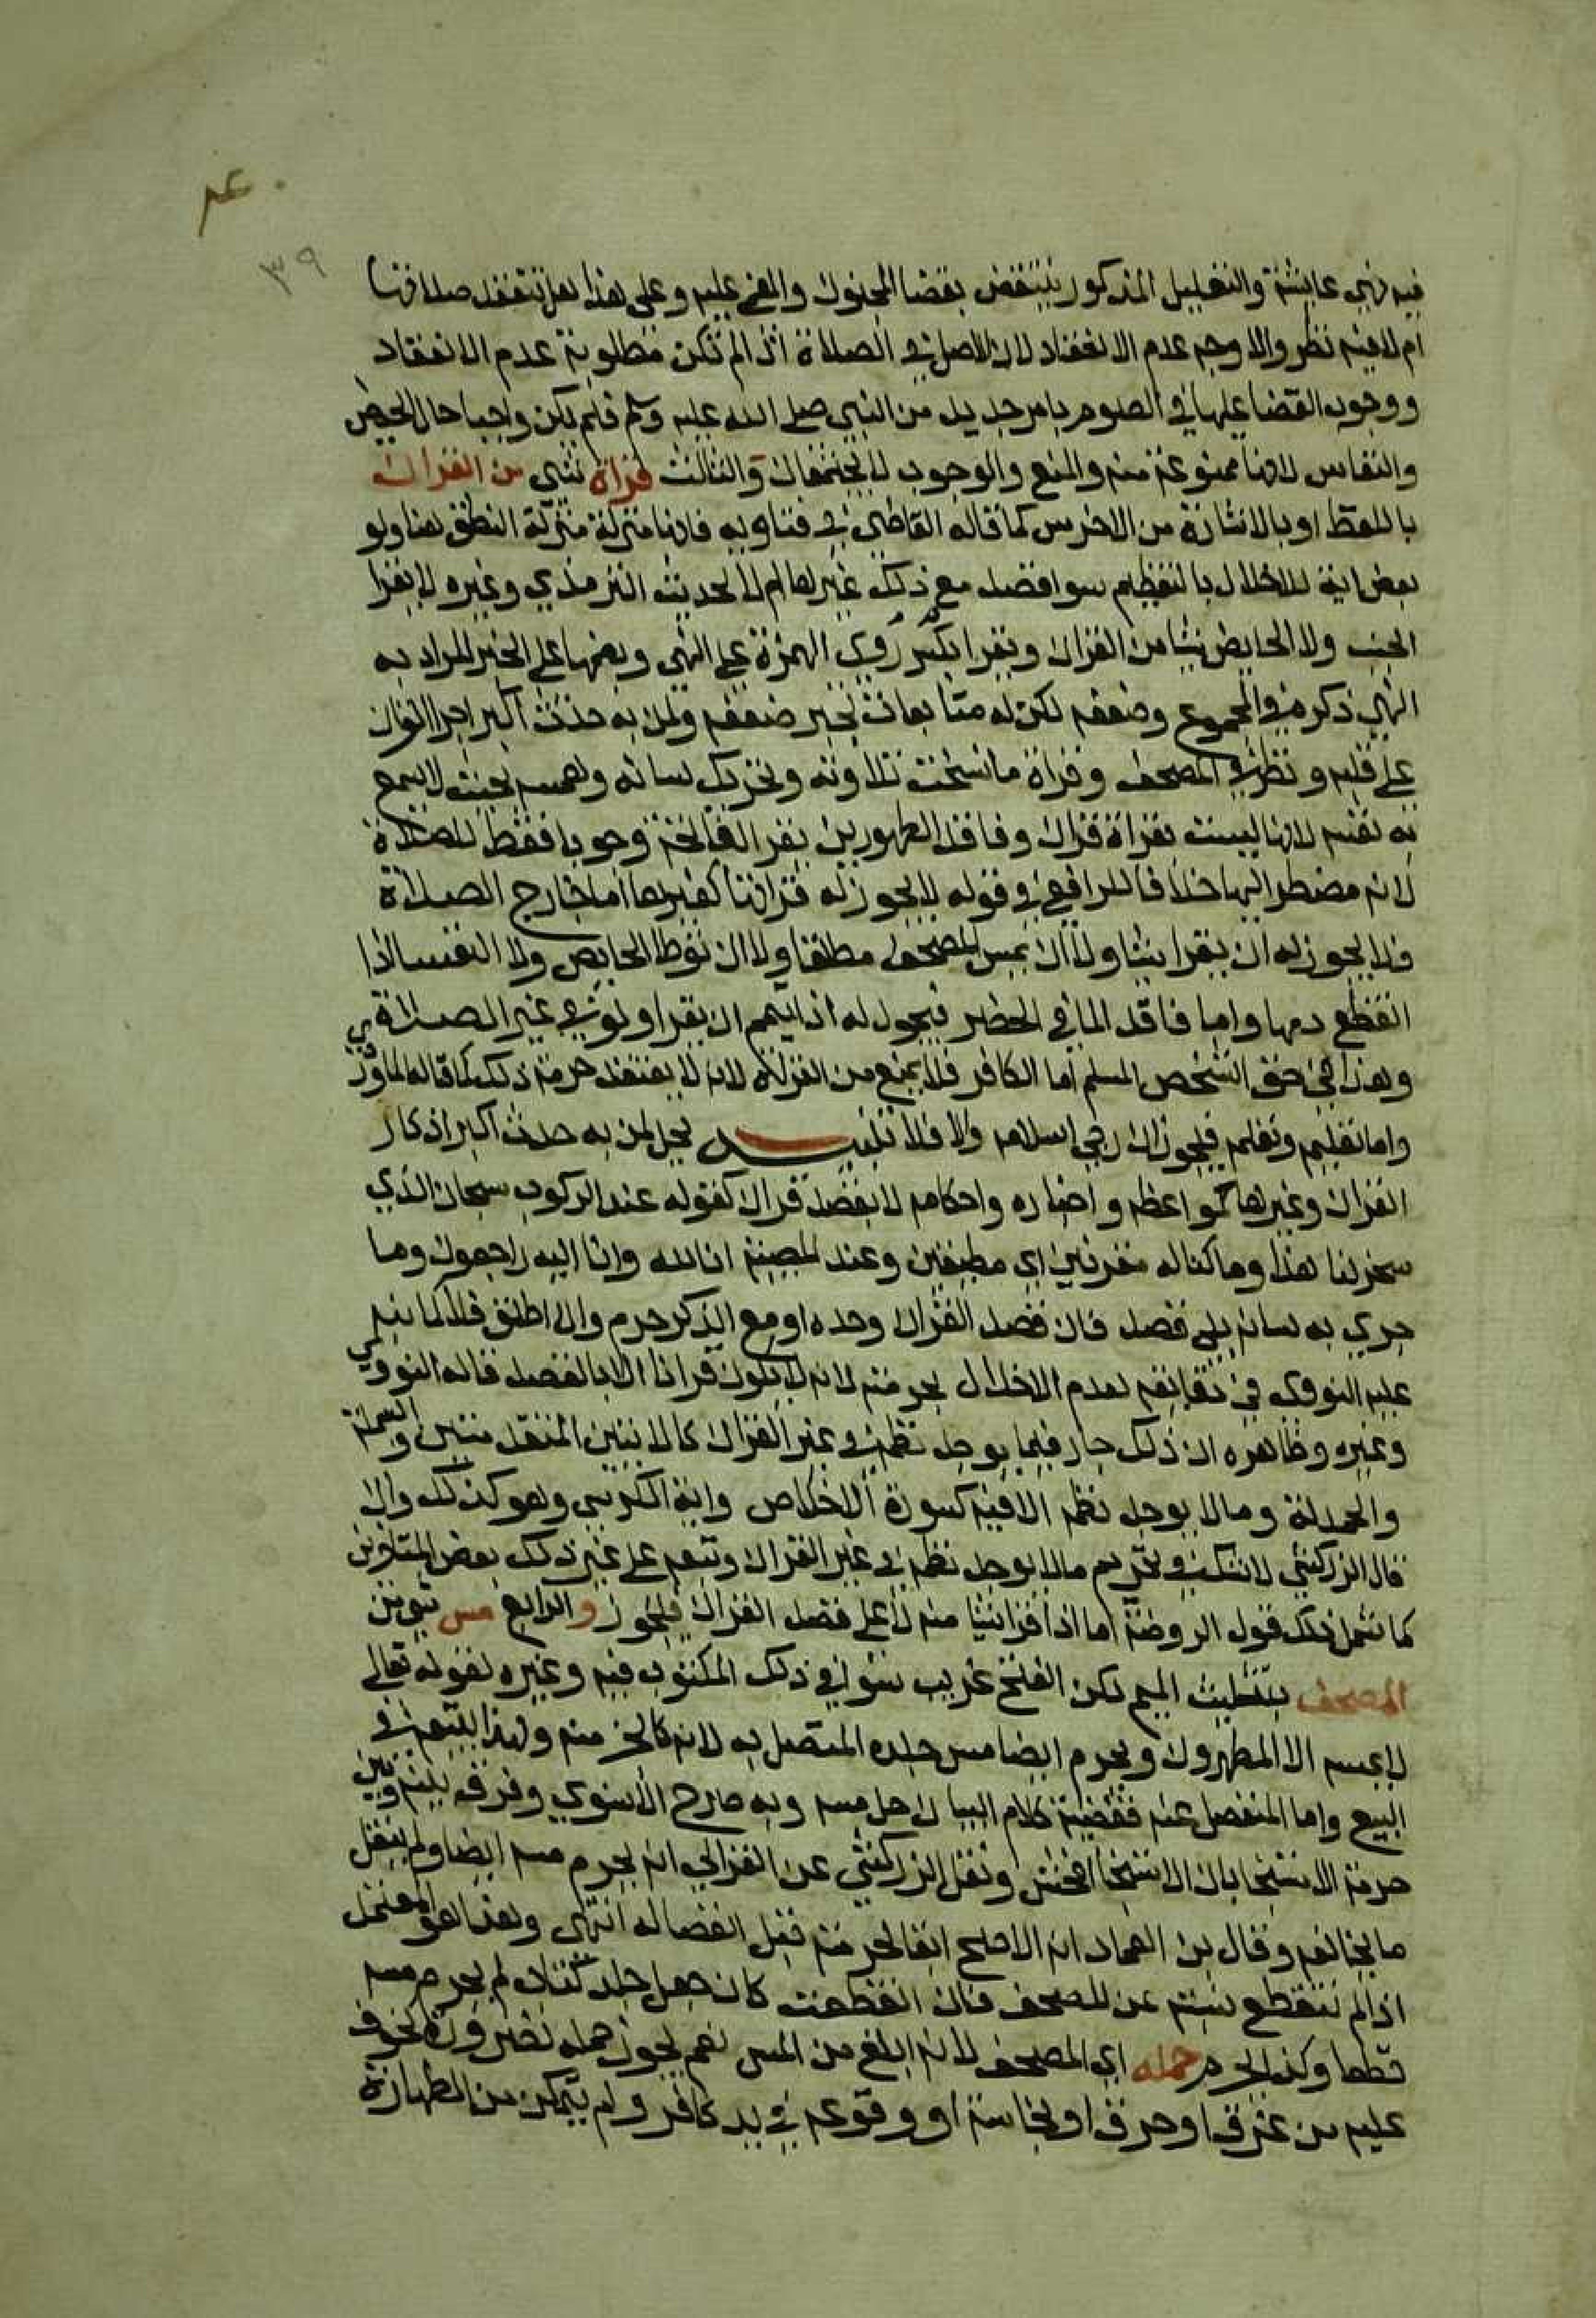 ٣٩
فيه نهي عايشة والتعليل المذكور ينتقض بقضا المجنون والمغمي عليه وعلى هذا هل تنعقد صلاتها
ام لا فيه نظر والاوجه عدم الانعقاد لان الاصل في الصلاة اذا لم تكن مطلوبة عدم الانعقاد
ووجوب القضا عليها في الصوم بامر جديد من النبي صلى الله عليه وسلم فلم يكن واجبا حال الحيض
والنفاس لانها ممنوعة منه والمنع والوجوب لا يجتمعان والثالث قراة شي من القران
باللفظ او بالاشارة من الاخرس كما قاله القاضي في فتاويه فانها منزلة منزلة النطق هنا ولو
بعض اية للاخلال بالتعظيم سوا اقصد مع ذلك غيرها ام لا لحديث الترمذي وغيره لا يقرا
الجنب ولا الحايض شيا من القران ويقرا بكسر روي الهمزة على النهي وبضمها على الخبر المراد به
النهي ذكره في المجموع وضعفه لكن له متابعات تجبر ضعفه ولمن به حدث اكبر اجرا القران
على قلبه ونظر في المصحف وقراة ما نسخت تلاوته وتحريك لسانه وهمسه بحيث لا يسمع
به نفسه لانها ليست بقراة قران وفاقد الطهورين يقرا الفاتحة وجوبا فقط للصلاة
لانه مضطر اليها خلافا للرافعي في قوله لا يجوز له قراتها كغيرها اما خارج الصلاة
فلا يجوز له ان يقرا شيا ولا ان يمس المصحف مطلقا ولا ان توطا الحايض ولا النفسا اذا
انقطع دمها واما فاقد الما في الحضر فيجوز له اذا تيمم ان يقرا ولو في غير الصلاة
وهذا في حق الشخص المسلم اما الكافر فلا يمنع من القراة لانه لا يعتقد حرمة ذلك كما قاله الماوردي
واما تعليمه وتعلمه فيجوز ان رجي اسلامه والا فلا تنبيه يحل لمن به حدث اكبر اذكار
القران وغيرها كمواعظه واخباره واحكامه لا بقصد قران كقوله عند الركوب سبحان الذي
سخر لنا هذا وما كنا له مقرنين اي مطيقين وعند المصيبة انا لله وانا اليه راجعون وما
جري به لسانه بلا قصد فان قصد القران وحده او مع الذكر حرم وان اطلق فلا كما نبه
عليه النووي في دقايقه لعدم الاخلال بحرمته لانه لا يكون قرانا الا بالقصد قاله النووي
وغيره وظاهره ان ذلك جار فيما يوجد نظمه في غير القران كالايتين المتقدمتين والبسملة
والحمدلة وما لا يوجد نظمه الا فيه كسورة الاخلاص واية الكرسي وهو كذلك وان
قال الزركشي لا شك في تحريم ما لا يوجد نظمه في غير القران وتبعه على غير ذلك بعض المتاخرين
كما شمل ذلك قول الروضة اما اذا قرا شيا منه لا على قصد القران فيجوز والرابع مس شي من
المصحف بتثليث الميم لكن الفتح غريب سوا في ذلك المكتوب فيه وغيره لقوله تعالى
لا يمسه الا المطهرون ويحرم ايضا مس جلده المتصل به لانه كالجز منه ولهذا يتبعه في
البيع واما المنفصل عنه فقضية كلام البيان حل مسه وبه صرح الاسنوي وفرق بينه وبين
حرمة الاستنجا بان الاستنجا افحش ونقل الزركشي عن الغزالي انه يحرم مسه ايضا ولم ينقل
ما يخالفه وقال بن العماد انه الاصح ابقا لحرمته قبل انفصاله انتهى وهذا هو المعتمد
اذا لم تنقطع نسبته عن المصحف فان انقطعت كان جعل جلد كتاب لم يحرم مسه
قطعا وكذا يحرم حمله اي المصحف لانه ابلغ من المس نعم يجوز حمله لضرورة كخوف
عليه من غرق او حرق او نجاسة او وقوعه في يد كافر ولم يتمكن من الطهارة